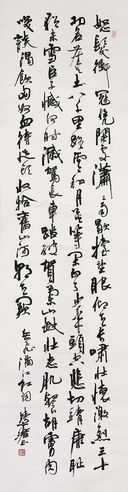 怒髮衝冠憑闌處瀟瀟雨歇抬望眼仰天長嘯壯懷激烈三十
功名塵與土八千里路雲和月莫等閒白了少年頭空悲切靖康恥
猶未雪臣子憾何時滅駕長車踏破賀蘭山缺壯志飢餐胡虜肉
笑談渴飲匈奴血待從頭收拾舊山河朝天闕 岳飛滿江紅詞